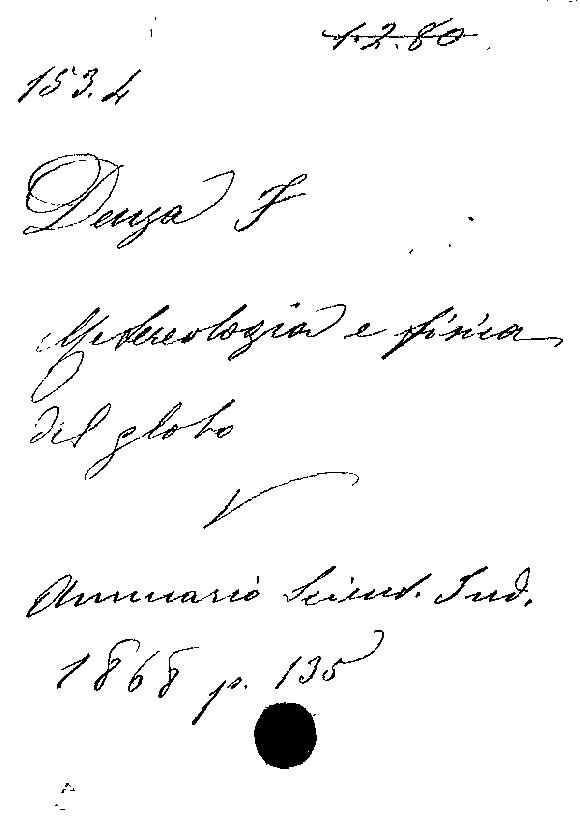 1.2.80
153.4
Denza F
Metereologia e fisica
del globo
Annuario Scient. Ind.
1868 p. 135